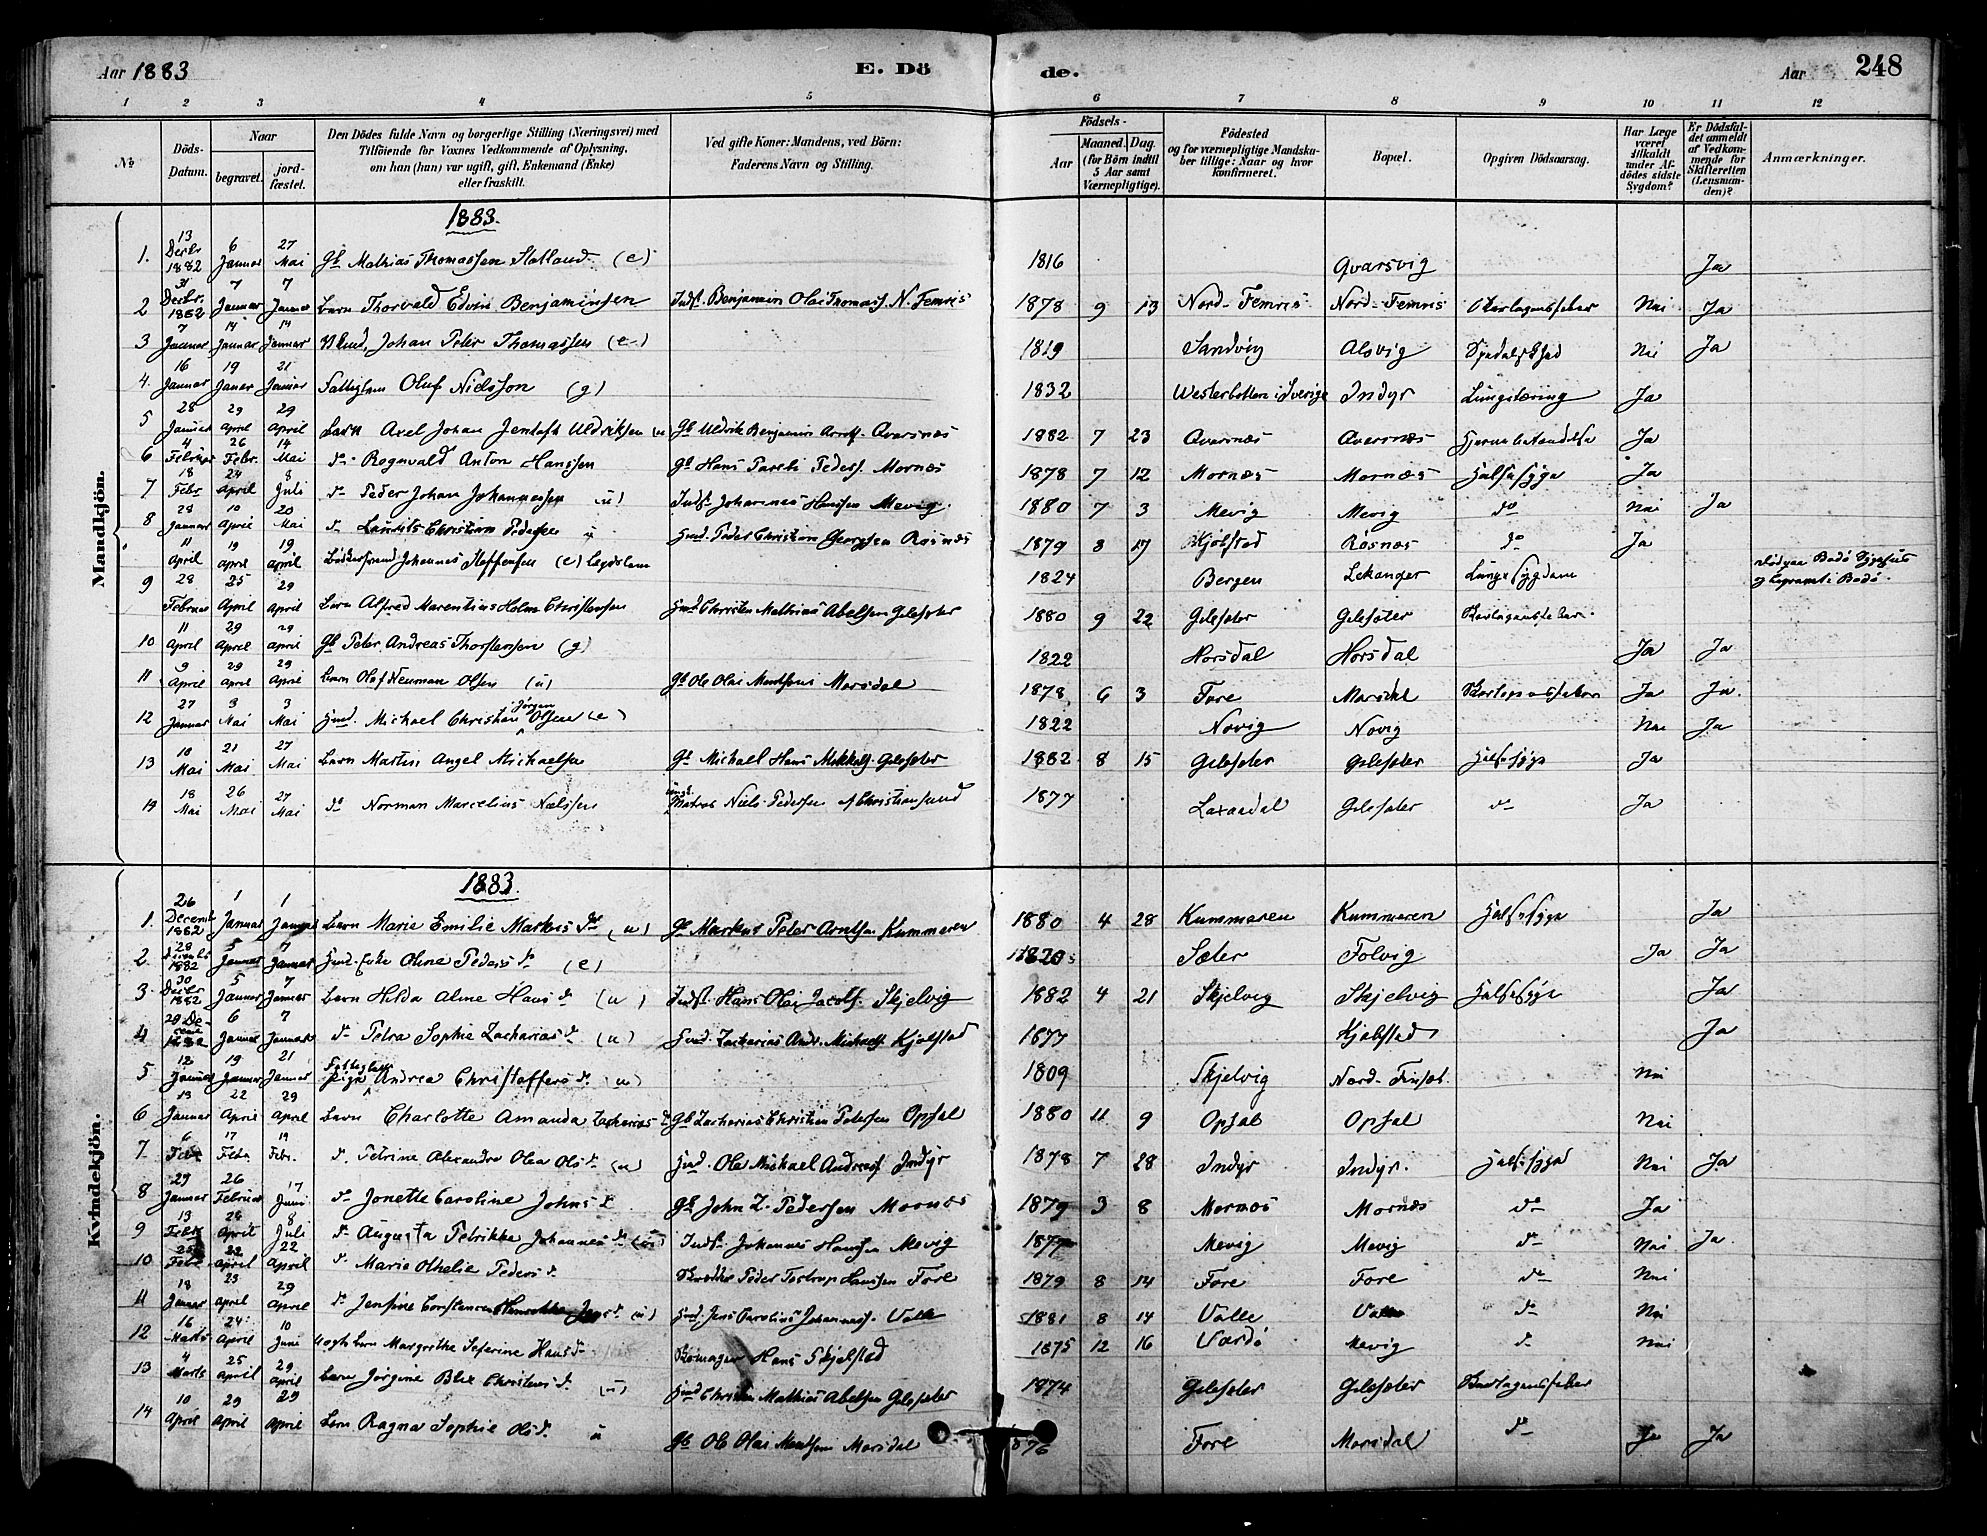 Aar 1883
E. Döde.
Aar
248
1 2 3 4 5 6 7 8 9 10 11 12
No
Döds-Datum.
Naar
begravet.
jordfæstet.
Den Dödes fulde Navn og borgerlige Stilling (Næringsvei) med
Tilföiende for Voxnes Vedkommende af Oplysning,
om han (hun) var ugift, gift, Enkemand (Enke)
eller fraskilt.
Ved gifte Koner: Mandens, ved Börn:
Faderens Navn og Stilling.
Födsels-
Aar
Maaned. Dag.
(for Börn indtil
5 Aar samt
Værnepligtige).
Födested
og for værnepligtige Mandskaber tillige: Naar og hvor
konfirmeret.
Bopæl.
Opgiven Dödsaarsag.
Har Læge
været
tilkaldt
under Afdödes sidste
Sygdom?
Er Dödsfaldet anmeldt
af Vedkommende for
Skifteretten
(Lensmanden)?
Anmærkninger.
Mandkjön.
1883.
1. 13 Decbr 1882 6 Januar 27 Mai Gb Mathias Thomassen Stalland (e) 1816 Qvarsvig Ja
2 31 Decbr. 1882 7 Januar 7 Januar Barn Thorvald Edvin Benjaminsen Indst. Benjamin Olai Thomass. N. Femris 1878 9 13 Nord-Femris Nord-Femris Skarlagensfeber Nei Ja
3 7 Januar 14 Januar 14 Januar Johan Peter Thomassen (e) 1819 Sandvig Alsvig Spedalskhed Nei Ja
4. 16 Januar 19 Januar 21 Januar Fattiglem Oluf Nielsson (g) 1832 Westerbotten i Sverige Indyr Lungetæring Ja
5 28 Januar 29 April 29 April Barn Axel Johan Jentoft Uldriksen (u Gb Uldrik Benjamin Arntf. Qvarsnæs 1882 7 23 Qvarsnæs Qvarsnæs Hjernebetændelse Ja
6 4 Februar 26 Febr. 14 Mai do Rognvald Anton Hanssen Gb Hans Pareli Peders. Mornæs 1878 7 12 Mornæs Mornæs Halssyge Ja
7 18 Febr 24 April 8 Juli do Peder Johan Johannessen (u) Indst. Johannes Hanssen Mevig. 1880 7 3 Mevig Mevig do Nei Ja
8 28 Januar 10 April 20 Mai do Laurits Christian Pedersen u Husd. Peder Christian Georgsen Røsnæs 1879 8 17 Kjølstad Røsnæs do Ja
11 April 19 April 19 April Johannes Steffensen (e) Lægdslem 1824 Bergen Lekanger Lungesygdom
9 28 Februar 25 April 29 April Barn Alfred Marentius Holm Christensen Husd Christen Mathias Abelsen Gilesæter 1880 9 22 Gilesæter Gilesæter Skarlagensfeber
10 11 April 29 April 29 April Gb Peter Andreas Thorstensen (g) 1822 Horsdal Horsdal Ja Ja
11 9 April 29 April 29 April Barn Olaf Neuman Olsen (u) Gb Ole Olai Mentsens Morsdal 1878 6 3 Fore Morsdal Skarlagensfeber Ja Ja.
12 27 Januar 3 Mai 3 Mai Husd. Michael Christian Jørgen Olsen (e) 1822 Novig Novig Nei Ja
13 10 Mai 21 Mai 27 Mai Barn Martin Angel Michaelsen Gb Michael Hans Mikkels. Gilesæter 1882 8 15 Gilesæter Gilesæter Halssyge Ja
14 18 Mai 26 Mai 27 Mai do Norman Marcelius Nielssen Matros Niels Pedersen af Christiansund 1877 Laxaadal Gilesæter do Ja
Kvindekjön.
1883.
1. 26 Decemb 1882 1 Januar 1 Januar Barn Marie Emilie Markusdtr (u) Gb Markus Peter Arntsen Kummeren 1880 4 28 Kummeren Kummeren Halssyge Ja
2. 28 Decemb 1882 5 Januar 7 Januar Husd. Enke Oline Pedersd. (e) 1820 Sæter Folvig Ja Ja
3. 30 Decbr 1882 5 Januar 7 Januar Barn Hilda Aline Hansd. (u) Indst. Hans Olai Jacobs. Skjelvig 1882 4 21 Skjelvig Skjelvig Halssyge Ja
4 29 December 1882 6 Januar 7 Januar do Petra Sophie Zachariasd. (u) Husd. Zacharias Andr. Michaels. Kjølstad 1877 Kjølstad Ja
5 12 Januar 19 Januar 21 Januar Fattiglem Pige Andrea Christoffersd. (u) 1809 Skjelvig Nord-Finset. Nei
6 13 Januar 22 April 29 April Barn Charlotte Amanda Zachariasd. Gb Zacharias Christian Petersen Opsal 1880 11 9 Opsal Opsal Nei
7. 6 Febr 17 Febr 19 Febr. do Petrine Alexandra Olea Olsd. (u) Husd. Ole Michael Andreas. Indyr 1878 7 28 Indyr Indyr. Halssyge Nei Ja
8 29 Januar 26 Februar 17 Juni do Jonette Caroline Johnsd. Gb John Z. Pedersen Mornæs 1879 3 8 Mornæs Mornæs do Ja
9 13 Febr. 24 April 8 Juli do Augusta Petrikke Johannesd. (u) Indst. Johannes Hanssen Mevig 1877 Mevig Mevig do Nei Ja
10 25 Febr 22 April 22 April do Marie Othelie Pedersd. Peder Tostrup Hanssen Fore 1879 8 14 Fore Fore do Nei
11 18 Januar 23 April 29 April do Jensine Jensd. (u) Husd. Jens Carolius Johannes. Valle 1881 8 14 Valle Valle do Nei
12 16 Marts 24 April 10 Juni Uægte Barn Margrethe Seferine Hansd. Skomager Hans Skjelstad 1875 12 16 Vardø Mevig do Nei
13 4 Marts 25 April 29 April Barn Jørgine Christensd. (u) Husd Christen Mathias Abelsen Gilesæter 1874 Gilesæter Gilesæter Skarlagensfeber
14 10 April 29 April 29 April Barn Ragna Sophie Olsd. u Gb Ole Olai Mentsens Morsdal 1876 Fore Morsdal do Ja Ja